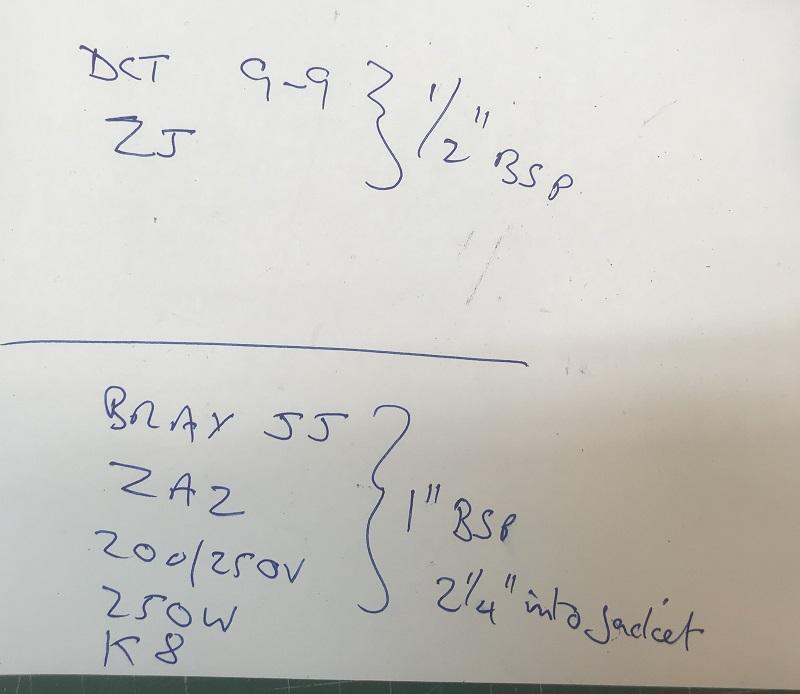 DCT 9-9 } 1/2" BSP
ZJ
BRAY JJ
ZA2
200/250V } 1" BSP
250W 2 1/4" into jacket
K8